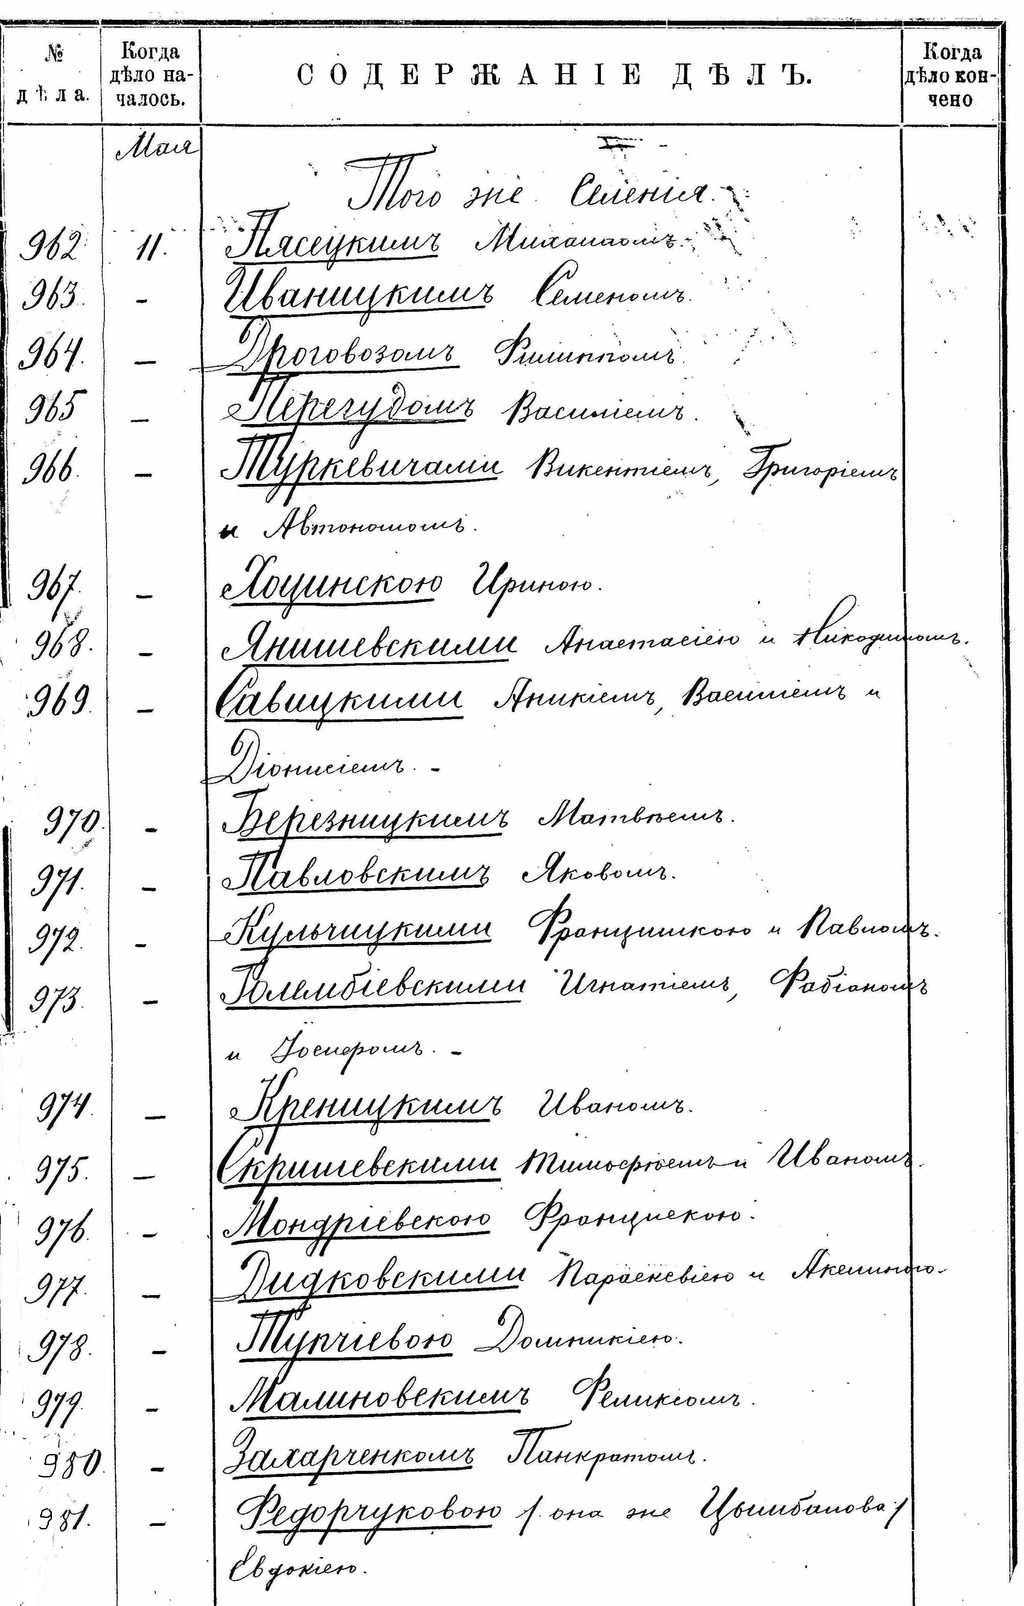 № дѣла.
Когда дѣло началось.
СОДЕРЖАНІЕ ДѢЛЪ.
Когда дѣло кончено
Мая
Того же Селенія.
962 11. Пясецкимъ Михаиломъ.
963. - Иваницкимъ Семеномъ.
964. - Дроговозомъ Филиппомъ.
965 - Перегудомъ Василіемъ.
966. - Туркевичами Викентіемъ, Григоріемъ
и Автономомъ.
967. - Хоцинскою Ириною.
968. - Янишевскими Анастасіею и Никодимомъ.
969. - Савицкими Аникіемъ, Василіемъ и
Діонисіемъ. -
970. - Березницкимъ Матвѣемъ.
971. - Павловскимъ Яковомъ.
972. - Кульчицкими Францишкою и Павломъ.
973. - Голембіевскими Игнатіемъ, Фабіаномъ
и Іосифомъ. -
974. - Креницкимъ Иваномъ.
975. - Скришевскими Тимофѣемъ и Иваномъ.
976. - Мондріевскою Францискою.
977. - Дидковскими Параскевіею и Акелиною.
978. - Тупчіевою Домникіею.
979. - Малиновскимъ Феликсомъ.
980. - Захарченкомъ Панкратомъ.
981. - Федорчуковою /. она же Цымбалова ./
Евдокіею.